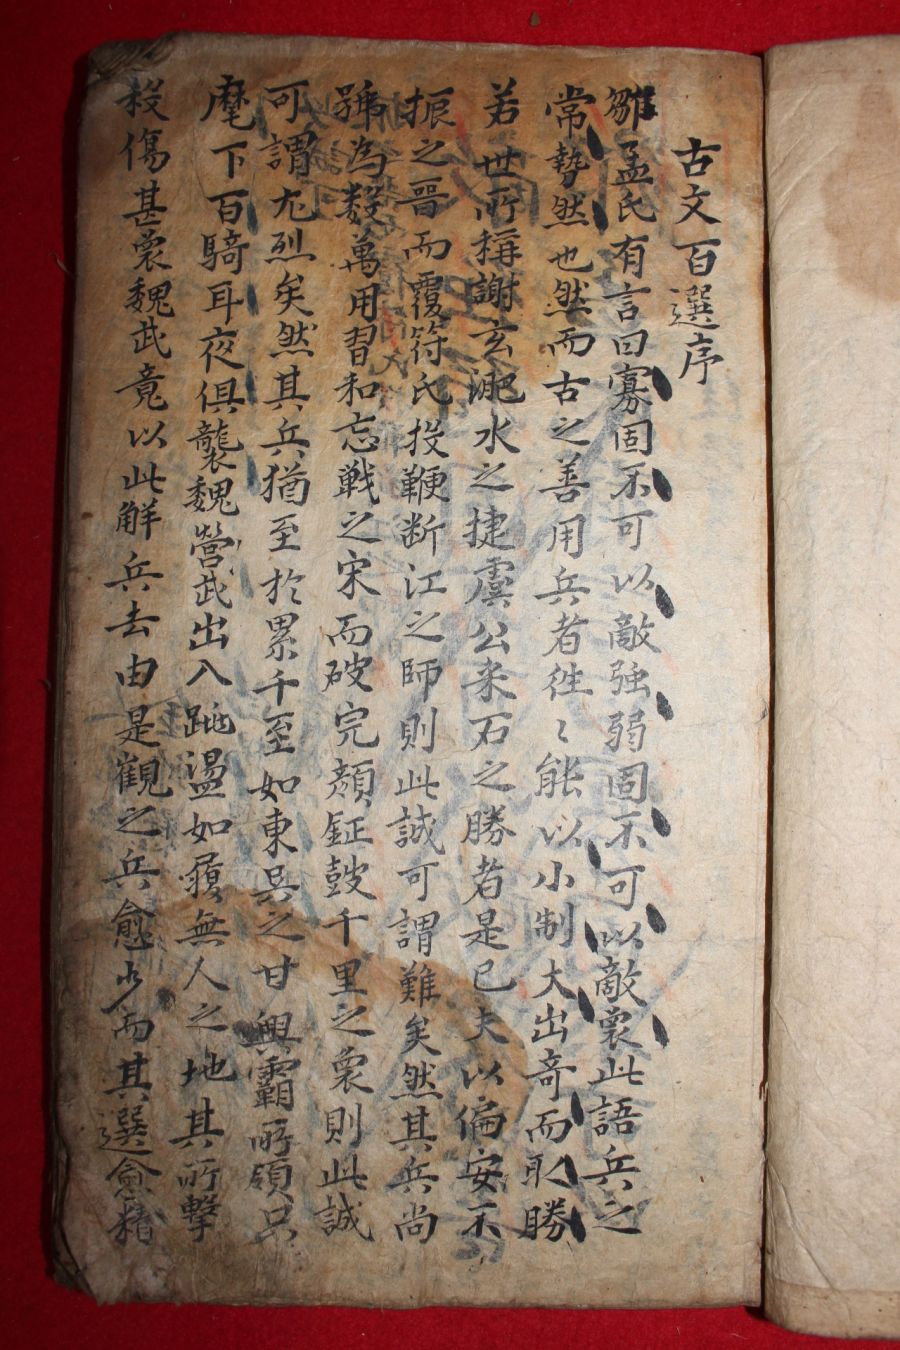 古文百選序
鄒孟氏有言曰寡固不可以敵強弱固不可以敵衆此語兵之
常勢然也然而古之善用兵者徃〻能以小制大出奇而取勝
若世所稱謝玄淝水之捷虞公采石之勝者是已夫以偏安不
振之晉而覆符氏投鞭断江之師則此誠可謂難矣然其兵尚
號為数萬用習和忘戦之宋而破完顔鉦鼓千里之衆則此誠
可謂尤烈矣然其兵猶至於累千至如東吳之甘興霸所領只
麾下百騎耳夜俱襲魏營武出入跳盪如蘋無人之地其所擊
殺傷甚衆魏武竟以此解兵去由是觀之兵愈少而其選愈精